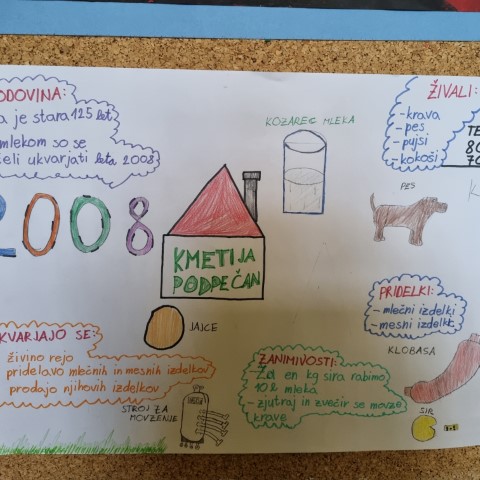 ODOVINA:
a je stara 125 let
mlekom so se
eli ukvarjati leta 2008
2008
KOZAREC MLEKA
ŽIVALI:
- krava
- pes
- pujsi
- kokoši
TE
80
70
K
PES
KMETIJA
PODPEČAN
JAJCE
PRIDELKI:
- mlečni izdelki
- mesni izdelki
KLOBASA
KVARJAJO SE:
živino rejo
pridelavo mlečnih in mesnih izdelkov
prodajo njihovih izdelkov
STROJ ZA
MOVZENJE
ZANIMIVOSTI:
Za en kg sira rabimo
10l mleka
- zjutraj in zvečer se movze
krave
SIR